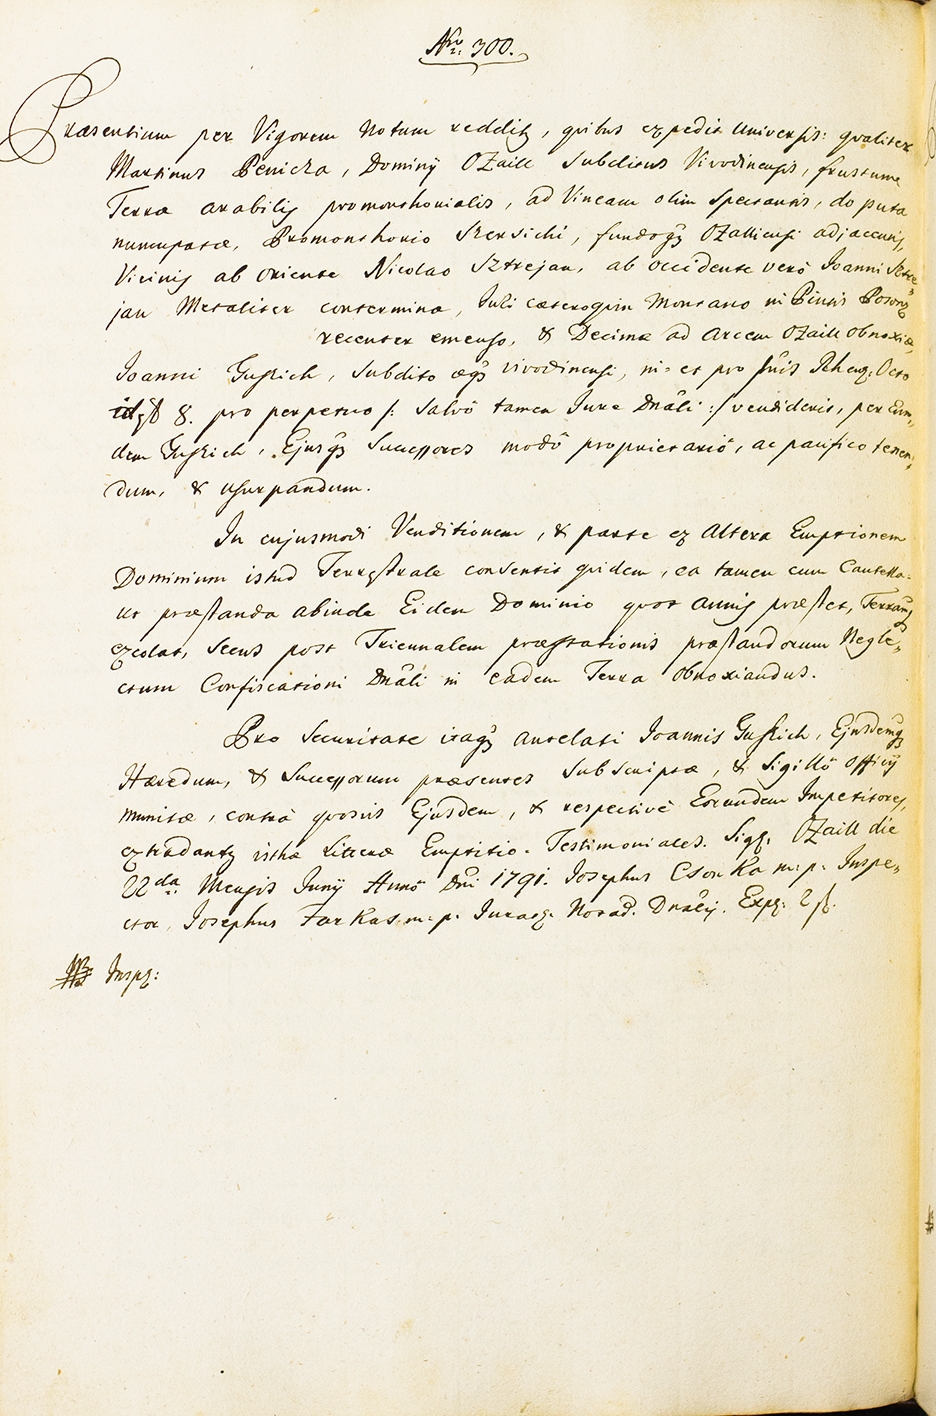 Nro: 300.
Præsentium per Vigorem Notum redditz, quibus expedit Universis: qualiter
Martinus Benicza, Dominÿ Ozaill Subditus Vivodinensis, frustum
Terræ arabilis promonthorialis, ad Vineam olim Spectantis, do puta
nuncupatæ, Promonthorio Skersichi, fundoqz Ozalliensi adjacens,
Vicinis ab oriente Nicolao Sztrejan, ab occidente verò Joanni Sztre„
jan Metaliter contermina, Juli cæteroquin Montano in Pintis Posonz
recenter emenso, & Decimæ ad Arcem Ozaill obnoxiæ,
Joanni Guskich, Subdito æqz vivodinensi, in- et pro fnis Rheng: Octo
id qst 8. pro perpetuo /: Salvô tamen Jure Dnâli :/ vendiderit, per Eun„
dem Guskich, Ejusqz Successores modô proprietariô, ac pacifico tenen„
dum, & usurpandum.
In cujusmodi Venditionem, & parte ex Altera Emptionem
Dominium istud Terrestrale consentit quidem, ea tamen cum Cautella.
Ut præstanda abinde Eidem Dominio quot annis præstet, Terramqz
excolat, Secus post Triennalem præstationis præstandorum Negle„
ctum Confiscationi Dnâli in eadem Terra obnoxiandus.
Pro Securitate itaqz antelati Joannis Guskich, Ejusdemqz
Hæredum, & Successorum præsentes Subscriptæ, & Sigillô Officÿ
munitæ, contrà quosvis Ejusdem, & respectivè Eorundem Impetitores,
extradantz isthæ Litteræ Emptitio-Testimoniales. Sigz. Ozaill die
22da Mensis Junÿ Annô Dni 1791. Josephus Csonka m: p. Inspe„
ctor, Josephus Farkas m: p. Juratz. Notad. Dnâlÿ. Expz. 2 f.
NB: Inspz: